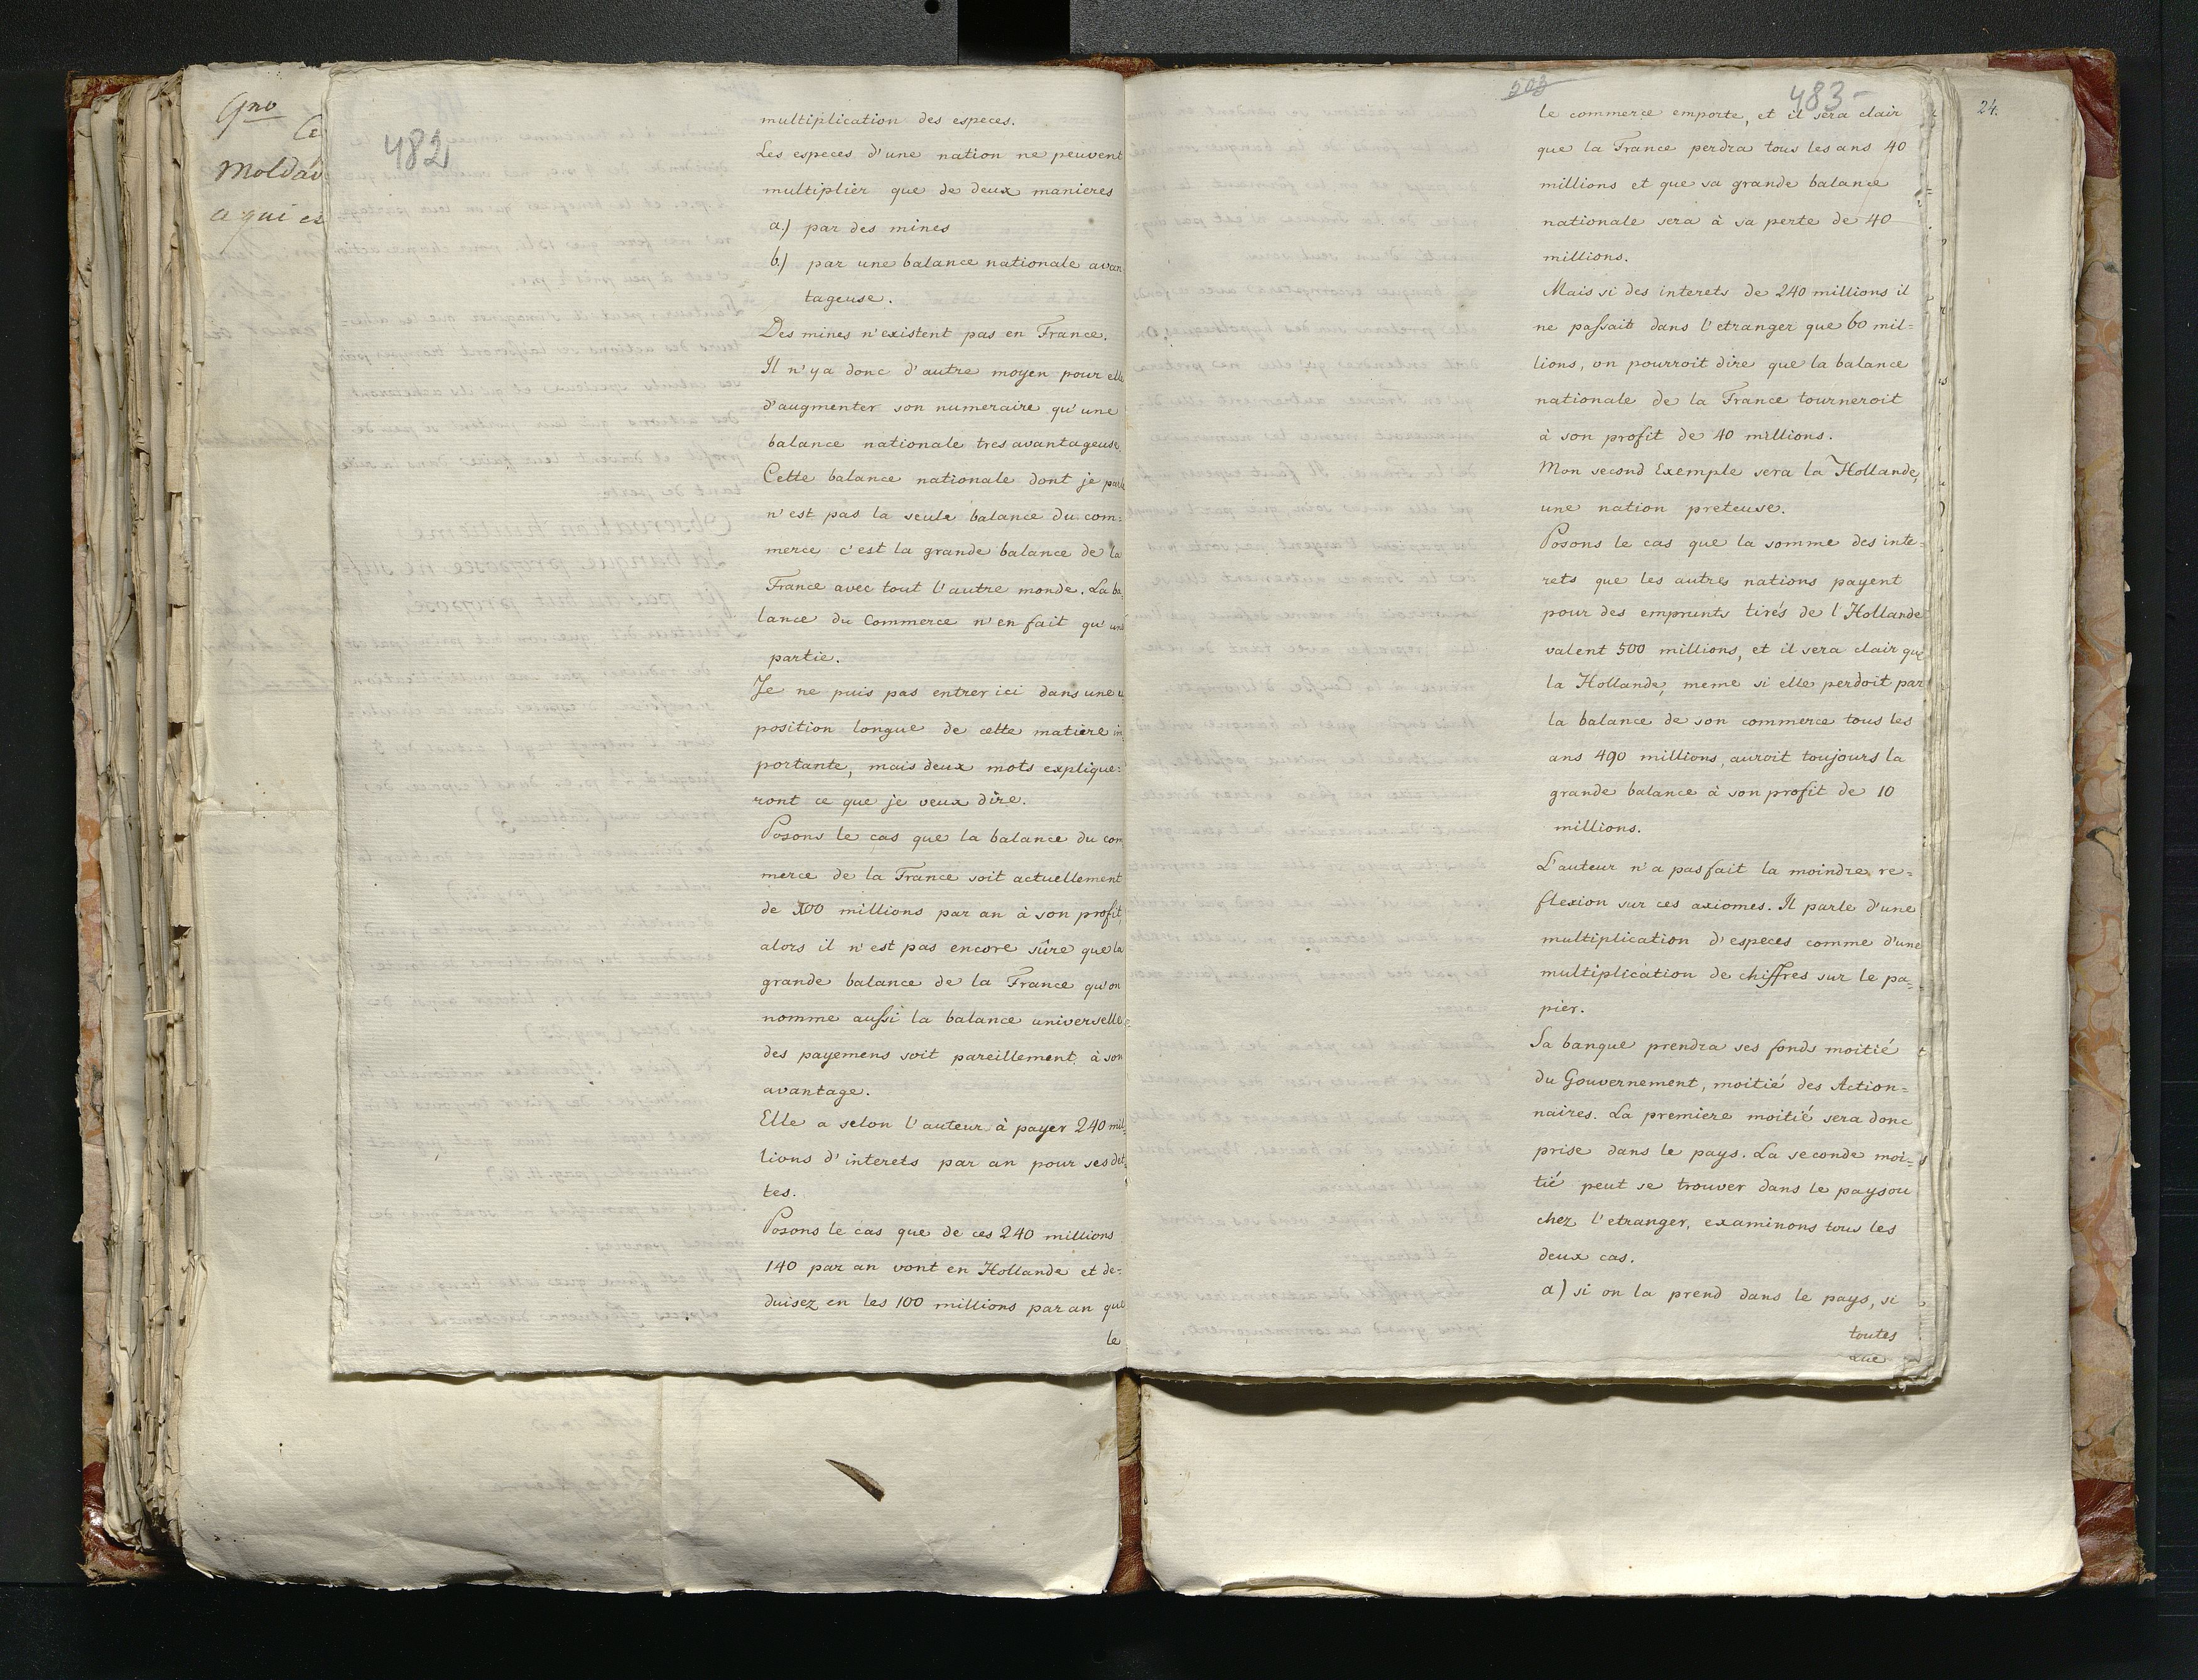 9no
Ce
Moldav
a qui es
482
multiplication des especes.
Les especes d'une nation ne peuvent
multiplier que de deux manieres
a.) par des mines
b.) par une balance nationale avan
tageuse.
Des mines n'existent pas en France.
Il n'ya donc d'autre moyen pour elle
d'augmenter son numeraire qu'une
balance nationale tres avantageuse.
Cette balance nationale dont je parle
n'est pas la seule balance du com=
merce c'est la grande balance de la
France avec tout l'autre monde. La ba=
lance du Commerce n'en fait qu'une
partie.
Je ne puis pas entrer ici dans une
position longue de cette matiere im
portante, mais deux mots explique=
ront ce que je veux dire.
Posons le cas que la balance du com
merce de la France soit actuellement
de 100 millions par an à son profit,
alors il n'est pas encore sûre que la
grande balance de la France qu'on
nomme aussi la balance universelle
des payemens soit pareillement à son
avantage.
Elle a selon l'auteur à payer 240 mil=
lions d'interets par an pour ses det=
tes.
Posons le cas que de ces 240 millions
140 par an vont en Hollande et de=
duisez en les 100 millions par an que
le
503
483
24.
le commerce emporte, et il sera clair
que la France perdra tous les ans 40
millions et que sa grande balance
nationale sera à sa perte de 40
millions.
Mais si des interets de 240 millions il
ne passait dans l'etranger que 60 mil=
lions, on pourroit dire que la balance
nationale de la France tourneroit
à son profit de 40 millions.
Mon second Exemple sera la Hollande,
une nation preteuse.
Posons le cas que la somme des inte=
rets que les autres nations payent
pour des emprunts tirés de l'Hollande
valent 500 millions, et il sera clair que
la Hollande, meme si elle perdoit par
la balance de son commerce tous les
ans 490 millions, auroit toujours la
grande balance à son profit de 10
millions.
L'auteur n'a pas fait la moindre re=
flexion sur ces axiomes. Il parle d'une
multiplication d'especes comme d'une
multiplication de chiffres sur le pa=
pier.
Sa banque prendra ses fonds moitié
du Gouvernement, moitié des Action=
naires. La premiere moitié sera donc
prise dans le pays. La seconde moi=
tié peut se trouver dans le pays ou
chez l'etranger, examinons tous les
deux cas.
a) si on la prend dans le pays, si
toutes